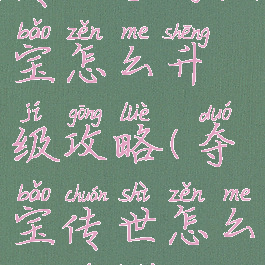 bǎo zěn me shēng
宝怎么升
jí gōng lüè duó
级攻略(夺
bǎo chuán shì zěn me
宝传世怎么